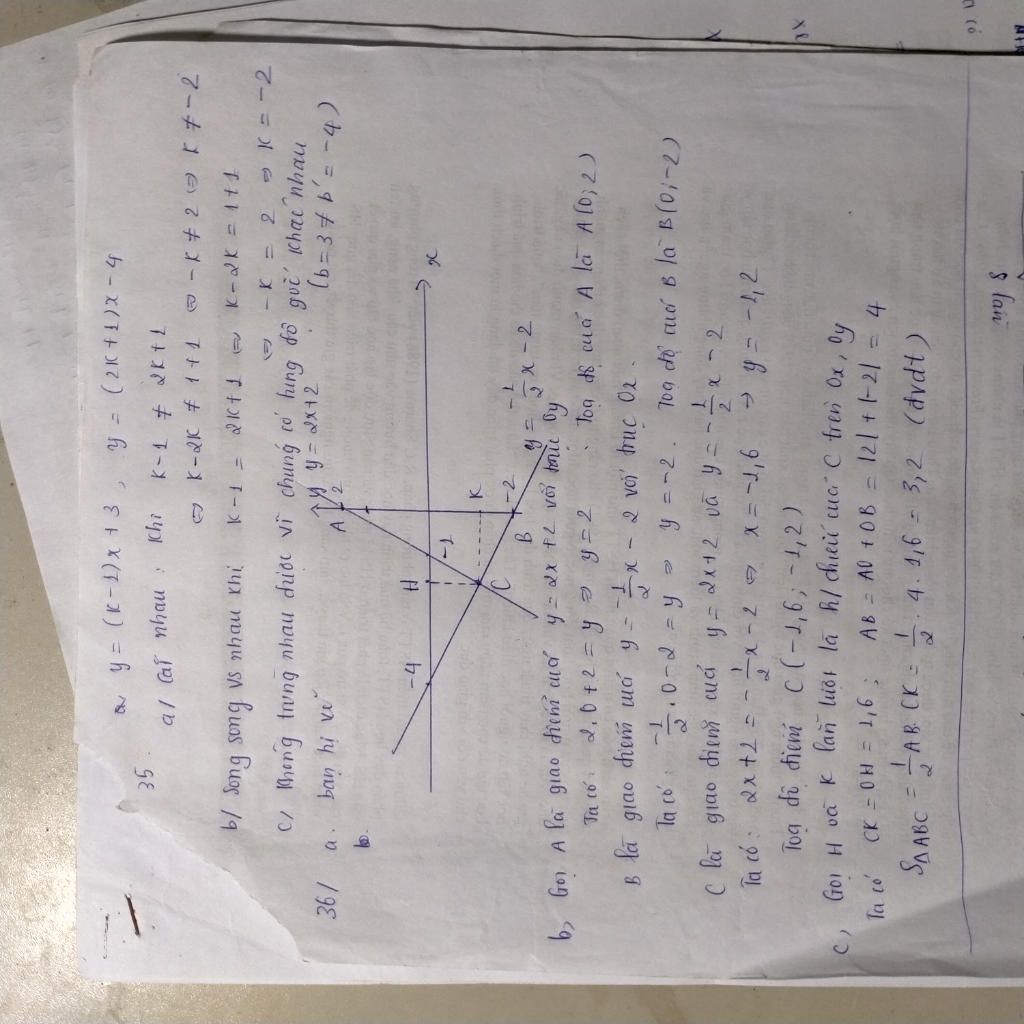 35 y = (K-1)x + 3 , y = (2K+1)x - 4
a/ Cắt nhau : Khi K-1 ≠ 2K+1
⇔ K-2K ≠ 1+1 ⇔ -K ≠ 2 ⇔ K ≠ -2
b/ Song song vs nhau khi K-1 = 2K+1 ⇔ K-2K = 1+1
⇔ -K = 2 ⇒ K = -2
c/ Không trùng nhau được vì chúng có tung độ gốc khác nhau
(b = 3 ≠ b' = -4)
36/ a. bạn tự vẽ
b.
y y = 2x+2
A 2
x
-4 H -1
C K
B -2
y = -1/2 x - 2
b, Gọi A là giao điểm của y = 2x+2 với trục Oy
Ta có: 2.0+2 = y ⇒ y = 2 . Toạ độ của A là A(0;2)
B là giao điểm của y = -1/2 x - 2 với trục Ox.
Ta có: -1/2 . 0 - 2 = y ⇒ y = -2. Toạ độ của B là B(0;-2)
C là giao điểm của y = 2x+2 và y = -1/2 x - 2
Ta có: 2x+2 = -1/2 x - 2 ⇔ x = -1,6 ⇒ y = -1,2
Toạ độ điểm C(-1,6; -1,2)
c, Gọi H và K lần lượt là h/chiếu của C trên Ox, Oy
Ta có CK = OH = 1,6 ; AB = AO + OB = |2| + |-2| = 4
S△ABC = 1/2 AB.CK = 1/2 . 4 . 1,6 = 3,2 (đvdt)